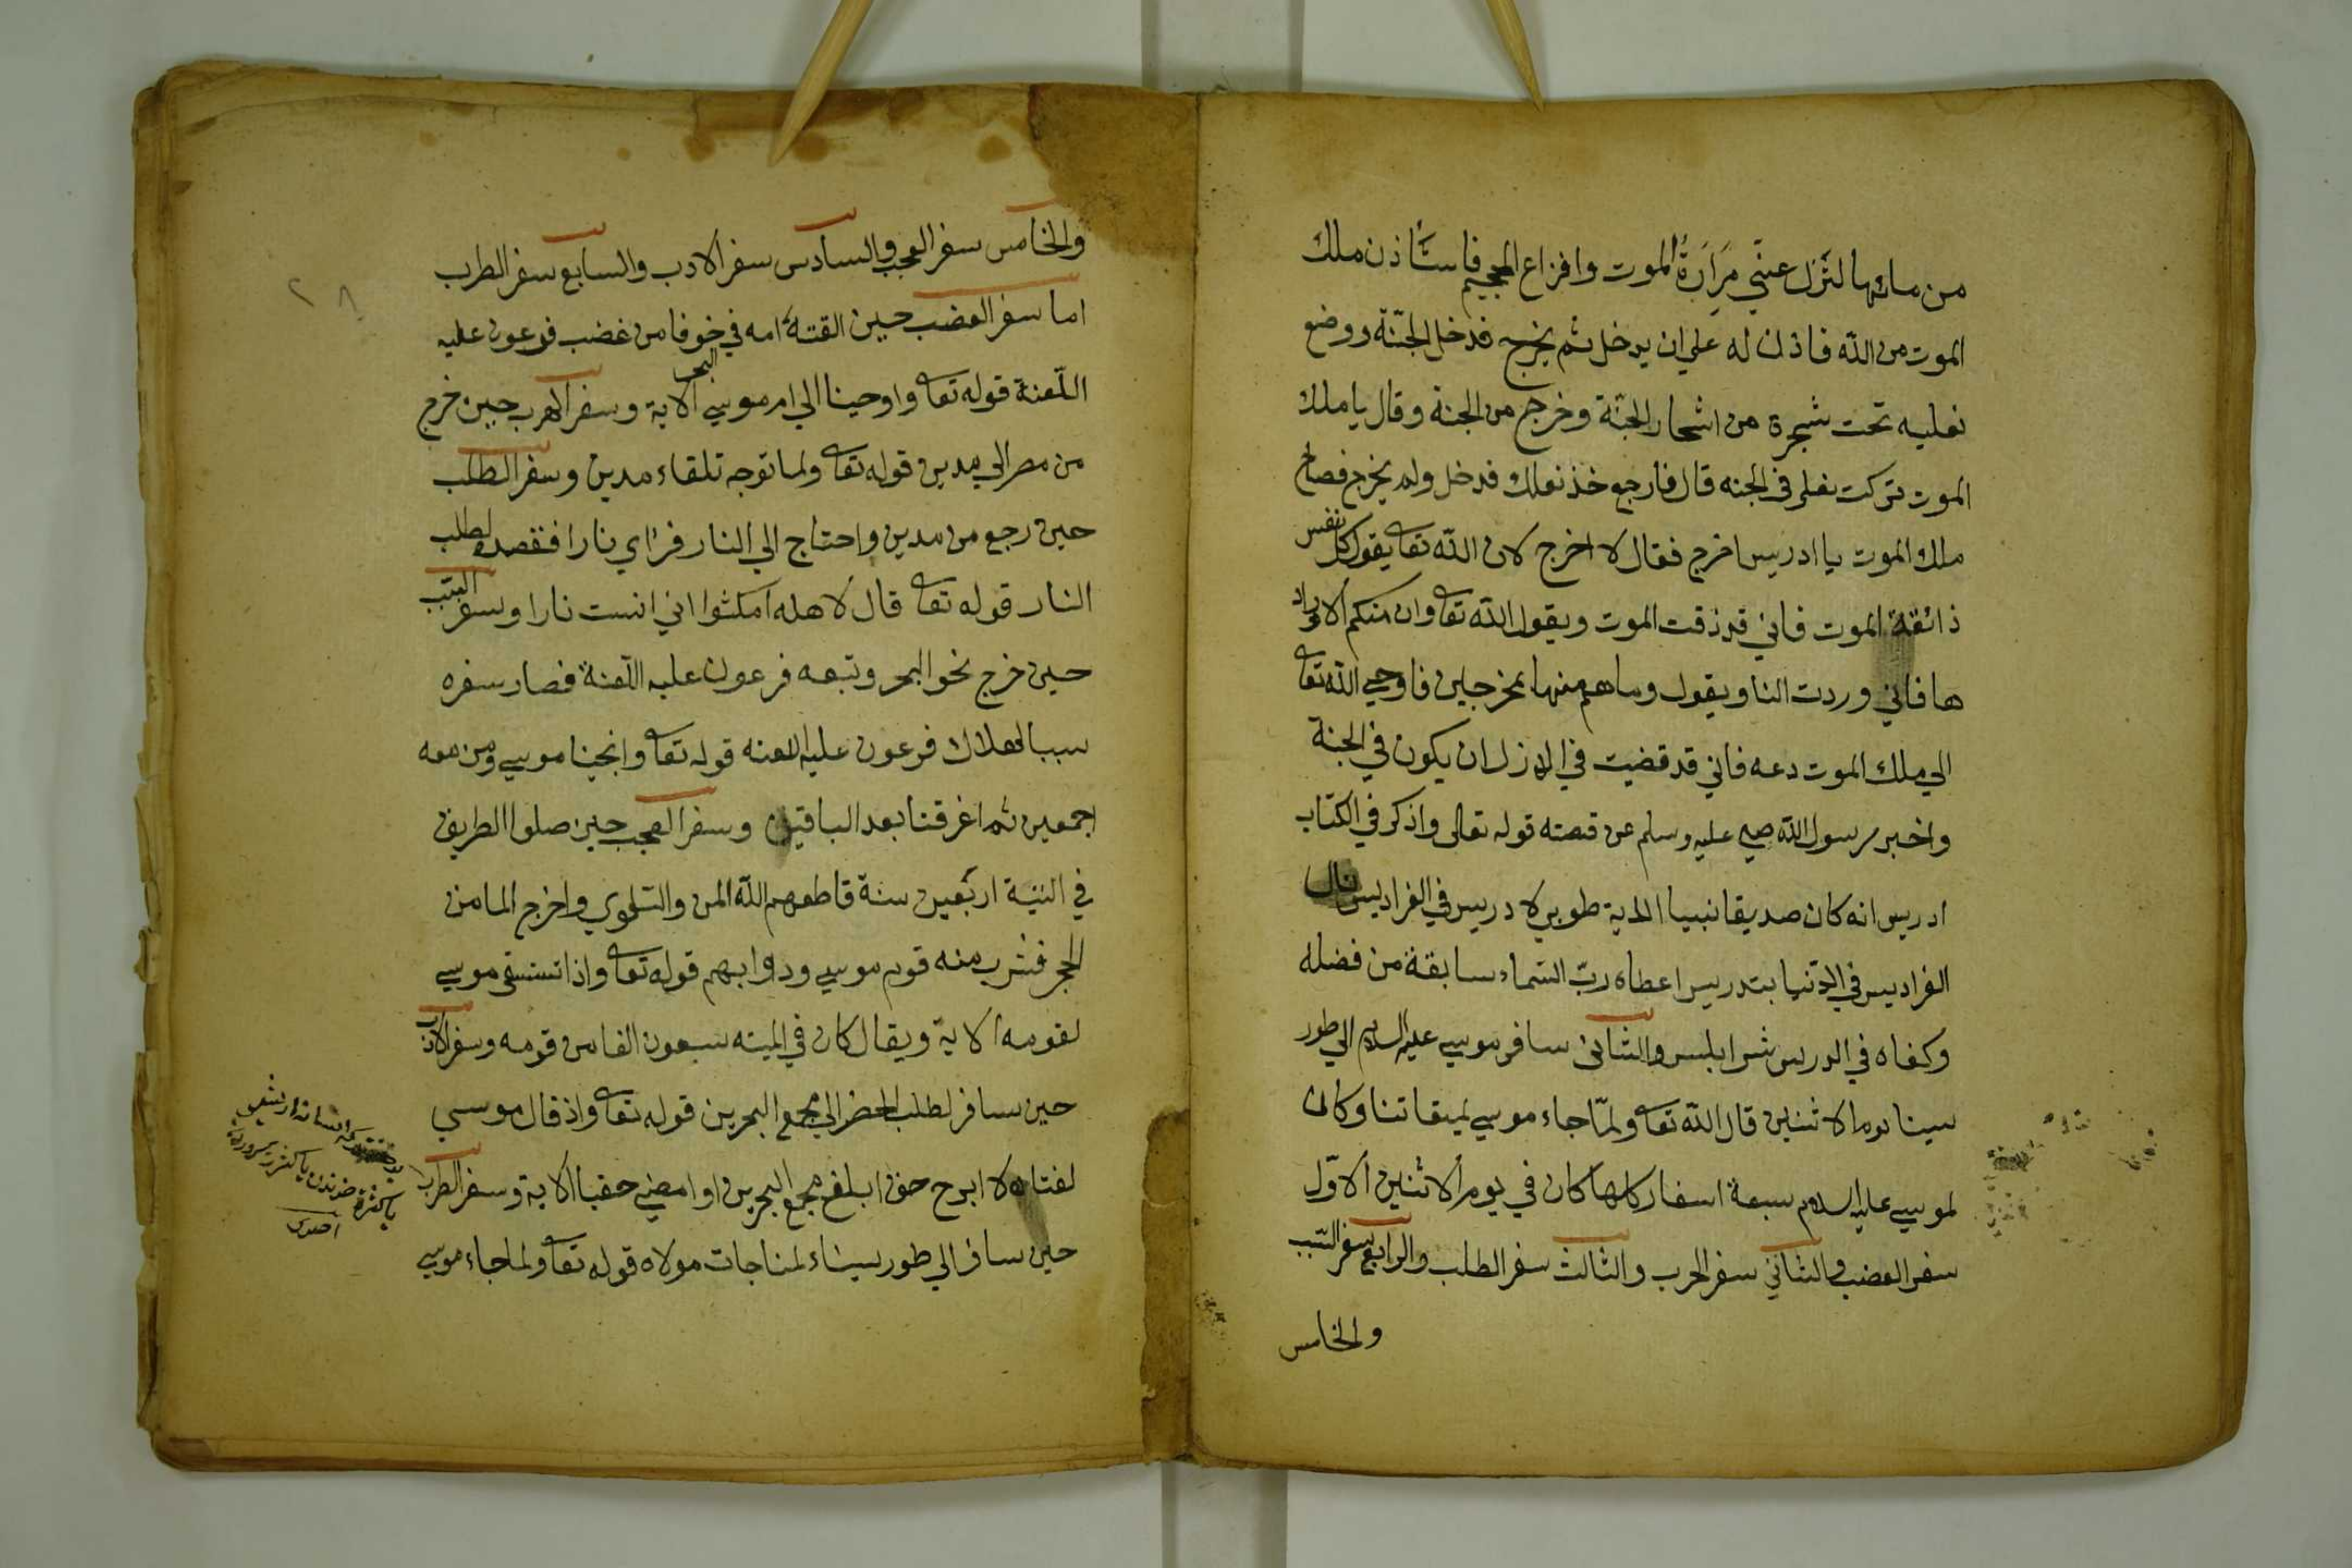 من مائها لتزل عنّي مَرَارَةُ الموت وافزاع الجحيم فاستأذن ملك
الموت من الله فاذن له علي ان يدخل ثم يخرج فدخل الجنّة ووضع
نعليه تحت شجرة من اشجار الجنّة وخرج من الجنة وقال يا ملك
الموت تركت نعلي في الجنه قال فارجع خذ نعلك فدخل ولم يخرج فصاح
ملك الموت يا ادريس اخرج فقال لا اخرج لان الله تعا يقول كل نفس
ذائقة الموت فاني قد ذقت الموت ويقول الله تعا وان منكم الا وارد
ها فاني وردت النا ويقول وما هم منها بمخرجين فاوحي الله تعا
الي ملك الموت دعه فاني قد قضيت في الازل ان يكون في الجنة
واخبر رسول الله صلي عليه وسلم عن قصته قوله تعالى واذكر في الكتاب
ادريس انه كان صديقا نبيا الاية طوبي لادريس في الفراديس نال
الفراديس في الدّنيا بتدريس اعطاه ربّ السّماء سابقة من فضله
وكفاه في الدرس شر ابليس والثاني سافر موسي عليه السلام الي طور
سينا يوم الاثنين قال الله تعا ولمّا جاء موسي لميقاتنا وكان
لموسي عليه السلام سبعة اسفار كلها كان في يوم الاثنين الاوّل
سفر الغضب والثاني سفر الحرب والثالث سفر الطلب والرابع سفر السّبب
والخامس
والخامس سفر العجب والسادس سفر الادب والسابع سفر الطرب
اما سفر الغضب حين القته امه في البحر خوفا من غضب فرعون عليه
اللّعنة قوله تعا واوحينا الي ام موسي الاية وسفر الهرب حين خرج
من مصر الي مدين قوله تعا ولما توجه تلقاء مدين وسفر الطلب
حين رجع من مدين واحتاج الي النار فرأي نارا فقصده لطلب
النار قوله تعا قال لاهله امكثوا اني انست نارا وسفر السّبب
حين خرج نحو البحر وتبعه فرعون عليه اللّعنة فصار سفره
سببا لهلاك فرعون عليه اللعنه قوله تعا وانجينا موسي ومن معه
اجمعين ثم اغرقنا بعد الباقين وسفر العجب حين ضلوا الطريق
في التيه اربعين سنة فاطعمهم الله المن والسّلوي واخرج الما من
الحجر فشرب منه قوم موسي ودوابهم قوله تعا واذا تستسقي موسي
لقومه الاية ويقال كان في الميته سبعون الفا من قومه وسفر الادب
حين سافر لطلب الخضر الي مجمع البحرين قوله تعا واذ قال موسي
لفتاه لا ابرح حتى ابلغ مجمع البحرين او امضي حقبا الاية وسفر الطرب
حين سافر الي طور سيناء لمناجات مولاه قوله تعا ولما جاء موسي